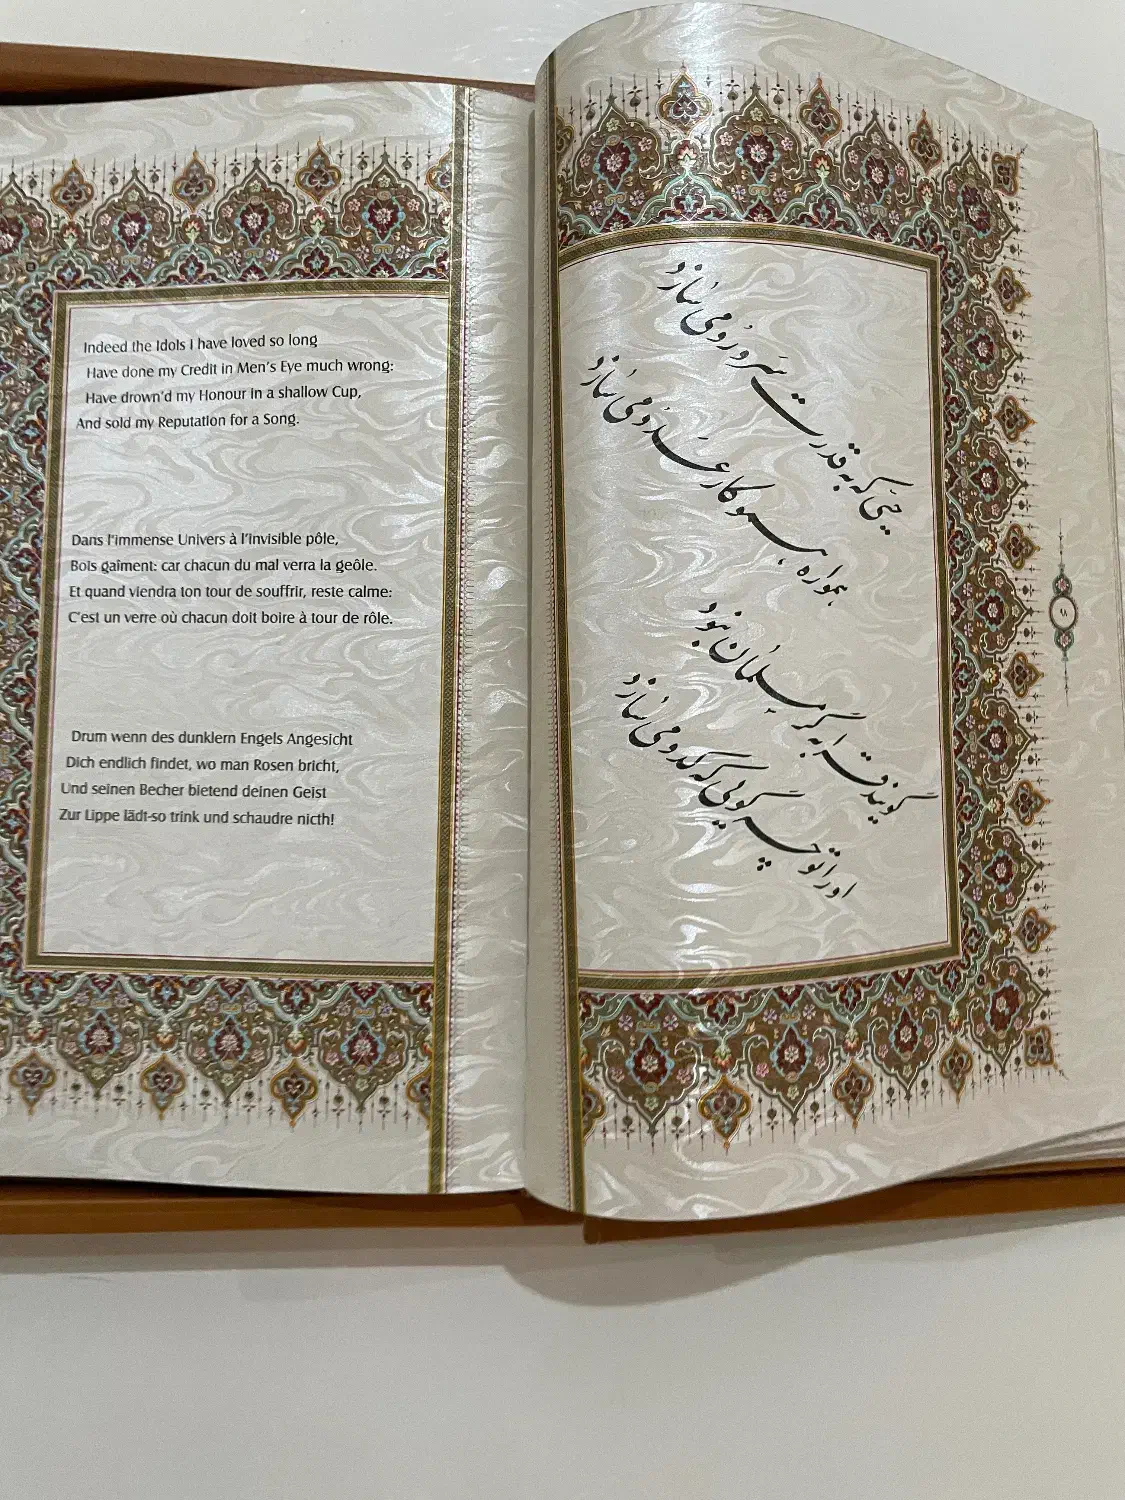 Indeed the Idols I have loved so long
Have done my Credit in Men's Eye much wrong:
Have drown'd my Honour in a shallow Cup,
And sold my Reputation for a Song.
Dans l'immense Univers à l'invisible pôle,
Bois gaîment: car chacun du mal verra la geôle.
Et quand viendra ton tour de souffrir, reste calme:
C'est un verre où chacun doit boire à tour de rôle.
Drum wenn des dunklern Engels Angesicht
Dich endlich findet, wo man Rosen bricht,
Und seinen Becher bietend deinen Geist
Zur Lippe lädt-so trink und schaudre nicth!
حیی که به قدرت سر و رو می سازد
همواره همو کار عدو می سازد
گویند قرابه گر مسلمان نبود
او را تو چه گویی که کدو می سازد
۹۸